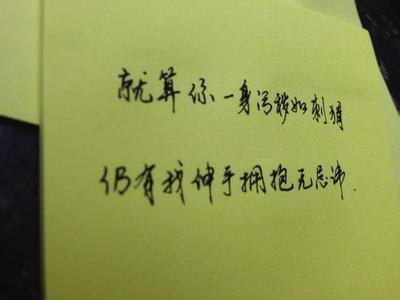 就算你一身污秽如刺猬
仍有我伸手拥抱无忌讳.